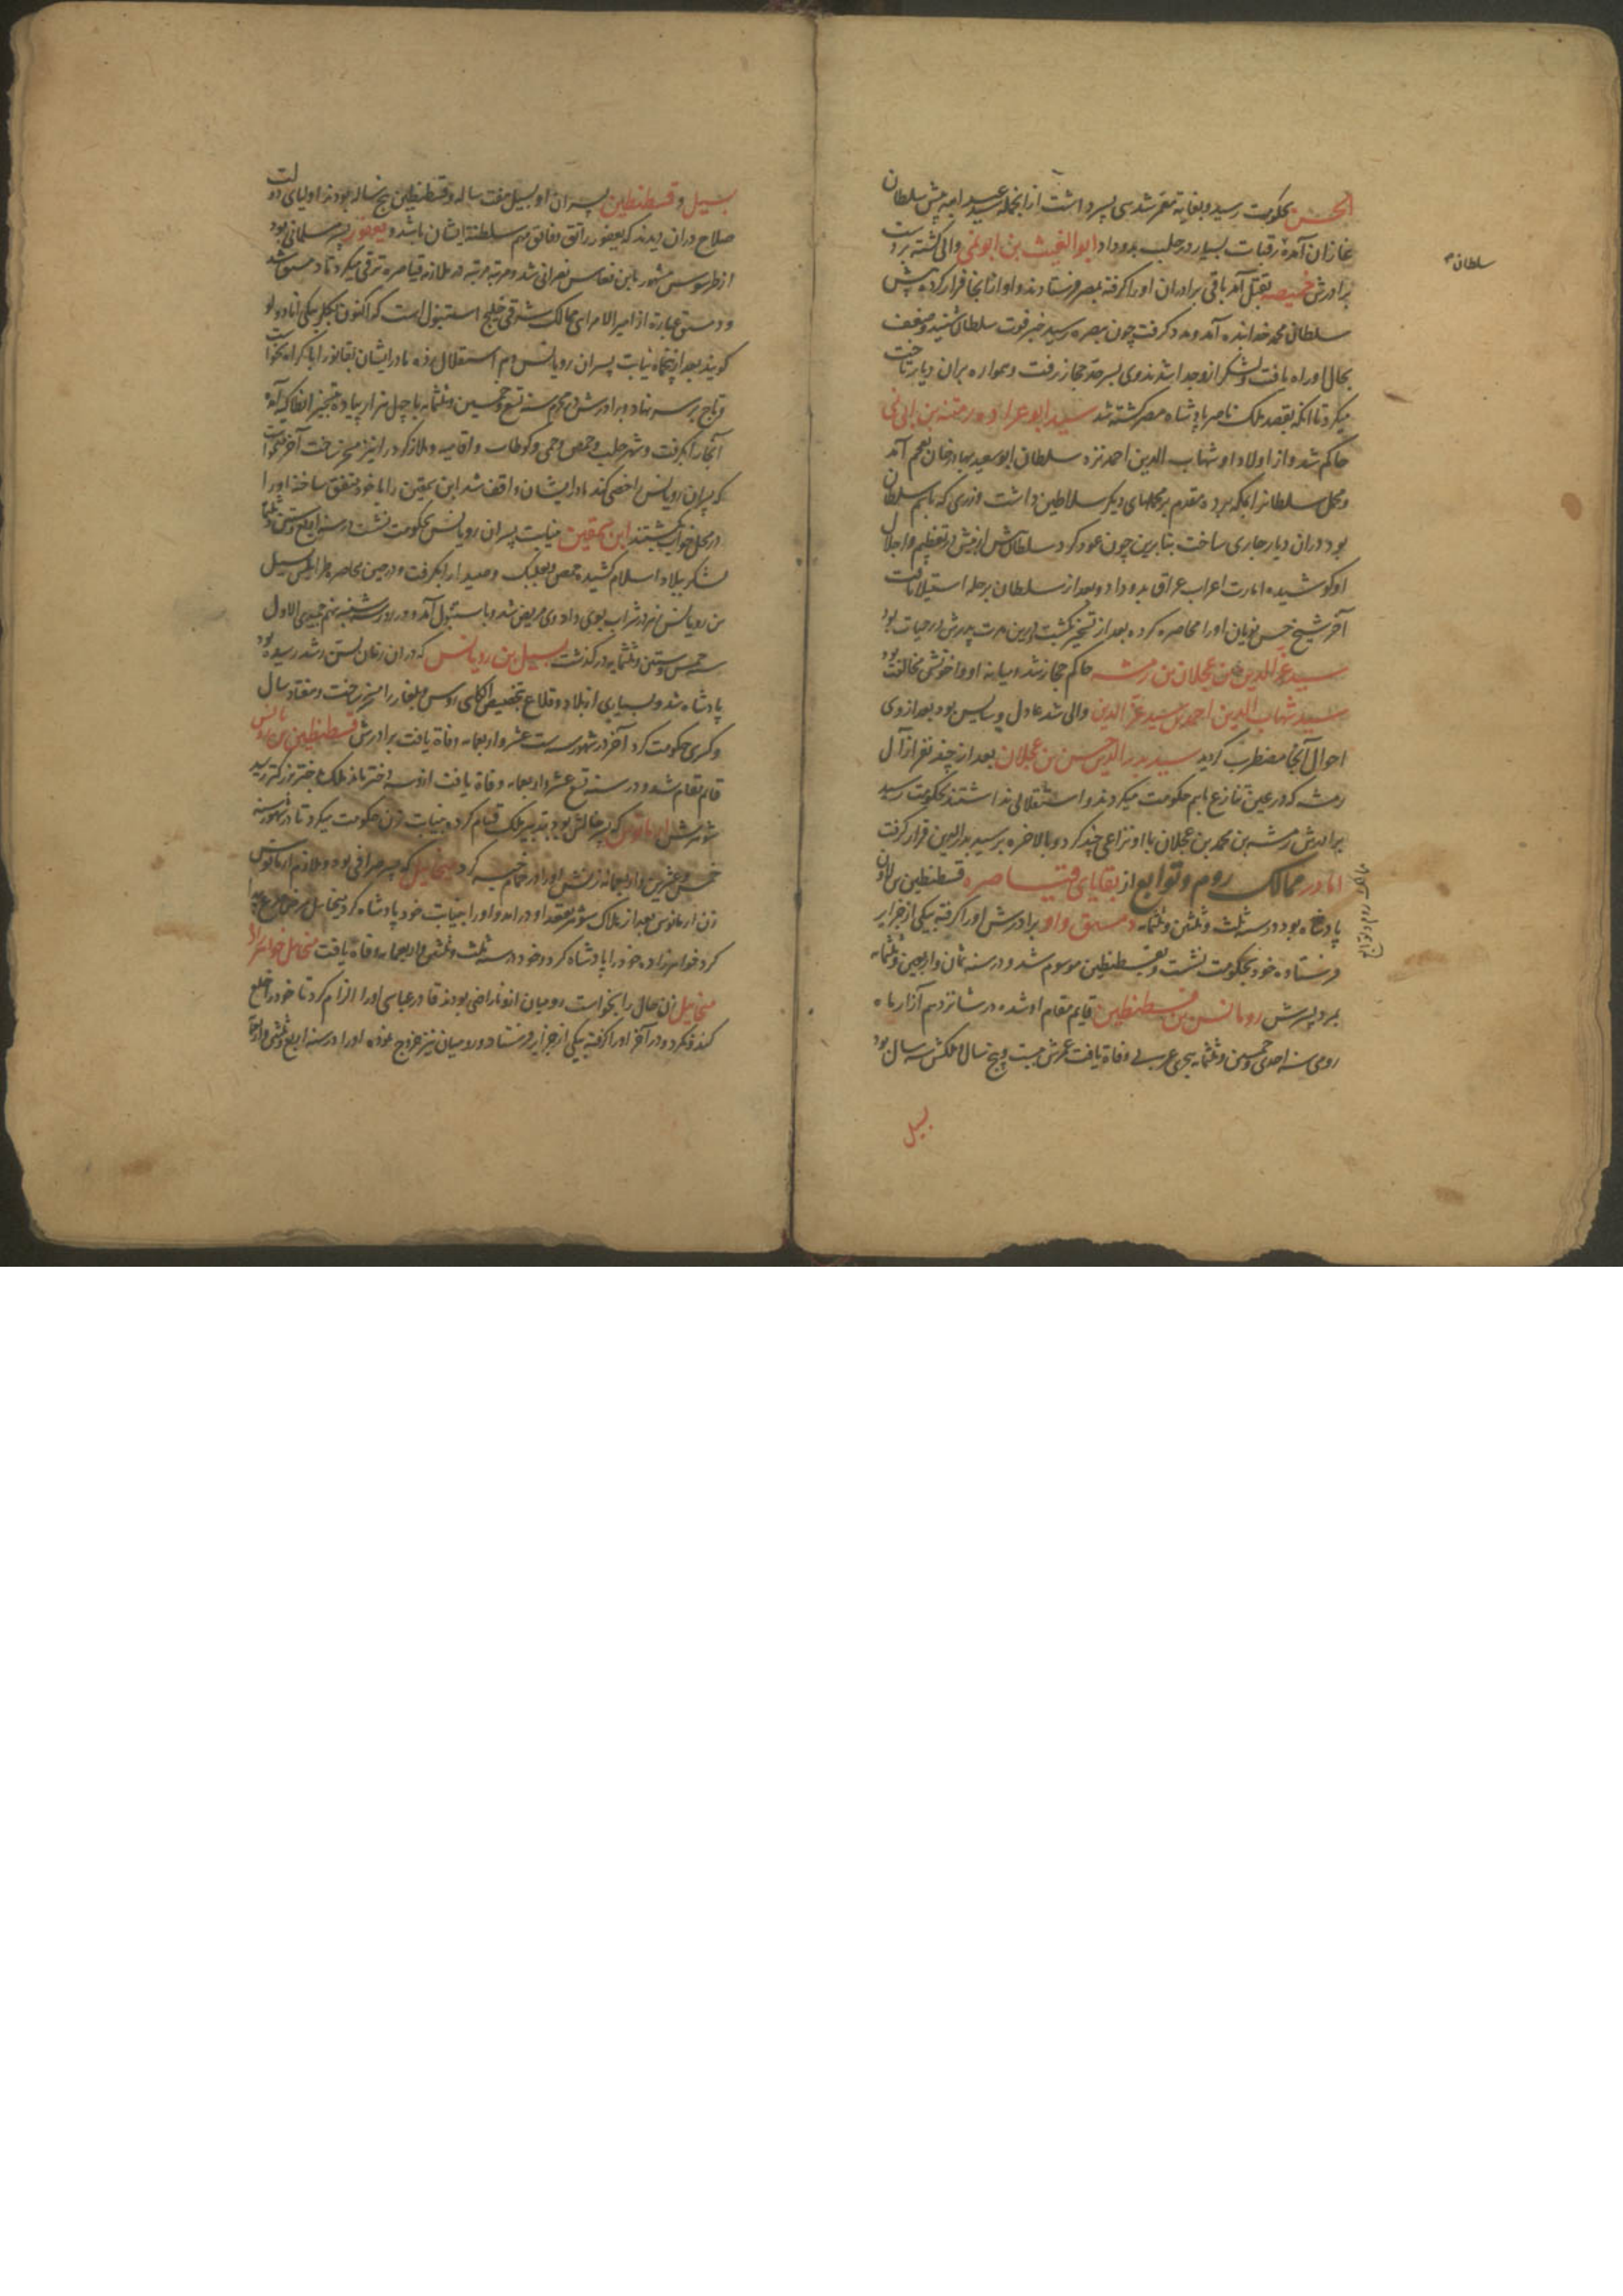 الحسن بحکومت رسید و بغایة معمر شد سی پسر داشت ازانجمله سید عمید امیه پیش سلطان
غازان آمده رقبات بسیار در حله بدو داد ابوالغیث بن ابونمی والی کشته بر دست
برادرش حمیصه بقتل آمد باقی برادران او را کرفته بمصر فرستادند و او ازانجا فرار کرده پیش
سلطان محمد خدابنده آمد و مدد کرفت چون ببصره رسید خبر فوت سلطان شنید و ضعف
بحال او راه یافت و لشکر ازو جدا شدند وی بسرحد حجاز رفت و همواره بران دیار تاخت
میکرد تا انکه بقصد ملک ناصر پادشاه مصر کشته شد سید ابو عراده رمیثه بن ابی نمی
حاکم شد و از اولاد او شهاب الدین احمد نزد سلطان ابوسعید بهادر خان بعجم آمد
و محمل سلطانرا بمکه برده مقدم بر محملهای دیکر سلاطین داشت و زری که باسم سلطان
بود دران دیار جاری ساخت بنابرین چون عود کرد سلطانش از پیش در تعظیم و اجلال
او کوشیده امارت اعراب عراق بدو داد و بعد از سلطان بر حله استیلا یافت
آخر شیخ حسن نویان او را محاصره کرده بعد از تسخیر بکشت درین مدت پدرش در حیات بود
سید عز الدین بن عجلان بن رمیثه حاکم حجاز شد و میانه او و اخوتش مخالفت بود
سید شهاب الدین احمد بن سید عز الدین والی شد عادل و سایس بود بعد از وی
احوال آنجا مضطرب کردید سید بدر الدین حسن بن عجلان بعد از چند نفر از آل
رمیثه که در عین تنازع باهم حکومت میکردند و استقلالی نداشتند بحکومت رسید
برادرش رمیثه بن محمد بن عجلان با او نزاعی چند کرد و بالاخره بر سید بدرالدین قرار کرفت
اما در ممالک روم و توابع از بقایای قیاصره قسطنطین بن لاون
پادشاه بود در سنه ثلث و ثلثین و ثلثمایه دمستق واو برادرش او را کرفته بیکی از جزایر
فرستاده خود بحکومت نشست و بقسطنطین موسوم شد و در سنه ثمان و اربعین و ثلثمایه
بمرد پسرش رومانس بن قسطنطین قایم مقام او شده در شانزدهم آزار ماه
رومی سنه احدی و خمسین و ثلثمایه هجری عربی وفاة یافت عمرش بیست و پنج سال ملکش سه سال بود
بسیل
سلطان
ممالک روم و توابع
بسیل و قسطنطین پسران او بسیل هفت ساله و قسطنطین پنج ساله بودند اولیای دولت
صلاح دران دیدند که یعفور راتق و فاتق مهم سلطنة ایشان باشد و یعفور پسر مسلمانی بود
از طرسوس مشهور بابن فعاس نصرانی شد و مرتبه مرتبه در ملازمة قیاصره ترقی میکرد تا دمستق شد
و دمستق عبارة از امیر الامرای ممالک شرقی خلیج استنبول است که اکنون بکلربکی اناد ولو
کویند بعد از پنجماه نیابت پسران رومانس دم استقلال زده مادر ایشان بقانور ابا کراه بخواست
و تاج بر سر نهاد و برادرش در محرم سنه تسع و خمسین و ثلثمایه با چهل هزار پیاده بتسخیر انطاکیه آمد
آنجا را بکرفت و شهر حلب و حمص و حمی و کوطاب و افامیه و ملازکرد را نیز مسخر ساخت آخر بخواست
که پسران رومانس را خصی کند مادر ایشان واقف شد ابن شمقین را با خود متفق ساخته او را
در محل خواب بکشتند ابن شمقین بنیابت پسران رومانس بحکومت نشست در سنه اربع و ستین و ثلثمایه
لشکر ببلاد اسلام کشیده حمص و بعلبک و صیدا را بکرفت و در حین محاصره طرابلس بسیل
بن رومانس زهر در شراب بوی داد وی مریض شد و باستنبول آمد و در روز سه شنبه پنجم جمیدی الاول
سنه خمس و ستین و ثلثمایه درکذشت بسیل بن رومانس که دران زمان بسن رشد رسیده بود
پادشاه شد و بسیاری از بلاد و قلاع بتخصیص الکای اوس و بلغار را مسخر ساخت و هفتاد سال
و کسری حکومت کرد آخر در شهور سنه ست عشر و اربعمایه وفاة یافت برادرش قسطنطین بن رومانس
قائم مقام شد و در سنه تسع عشر و اربعمایه وفاة یافت ازو سه دختر ماند ملک بدختر بزرکتر رسید
شوهرش ارمانوس که پسر خالش بود بتدبیر ملک قیام کرده بنیابت زن حکومت میکرد تا در شهور سنه
خمس و عشرین و اربعمایه زنش او را در حمام خبه کرد میخاییل که پسر صرافی بود و ملازم ارمانوس
زن ارمانوس بعد از هلاک شوهر بعقد او درامد و او را بنیابت خود پادشاه کرد میخاییل
کرد خواهرزاده خود را پادشاه کرد و خود در سنه ثلث و ثلثین و اربعمایه وفاة یافت میخاییل خواهرزاده
میخاییل زن خال را بخواست رومیان ازو ناراضی بودند قادر عباسی او را الزام کرد تا خود را خلع
کند نکرد و در آخر او را کرفته بیکی از جزایر فرستاد و رومیان نیز خروج نموده او را در سنه اربع و ثلثین و اربعمایه